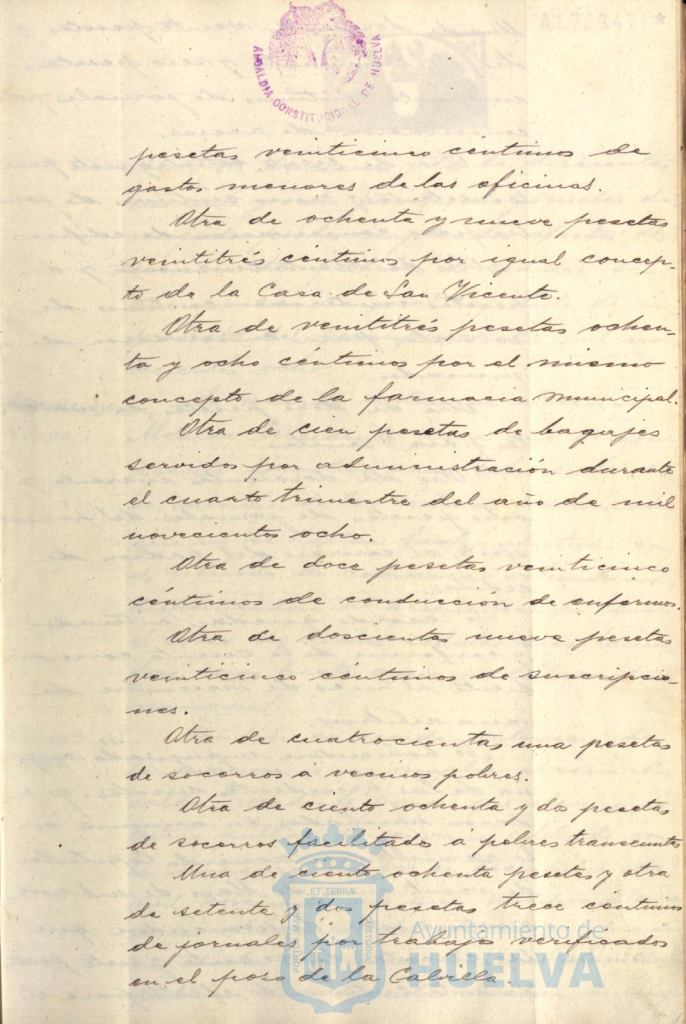 A1.729.471*
ALCALDIA CONSTITUCIONAL DE HUELVA
pesetas veinticinco céntimos de
gastos menores de las oficinas.
Otra de ochenta y nueve pesetas
veintitrés céntimos por igual concep-
to de la Casa de San Vicente.
Otra de veintitrés pesetas ochen-
ta y ocho céntimos por el mismo
concepto de la farmacia municipal.
Otra de cien pesetas de bagajes
servidos por administración durante
el cuarto trimestre del año de mil
novecientos ocho.
Otra de doce pesetas veinticinco
céntimos de conducción de enfermos.
Otra de doscientas nueve pesetas
veinticinco céntimos de suscripcio-
nes.
Otra de cuatrocientas una pesetas
de socorros á vecinos pobres.
Otra de ciento ochenta y dos pesetas
de socorros facilitados á pobres transeuntes
Una de ciento ochenta pesetas y otra
de setenta y dos pesetas trece céntimos
de jornales por trabajos verificados
en el pozo de la Calvilla.
ET TERRÆ
PORTUS MARIS
CUSTODIA
Ayuntamiento de
HUELVA